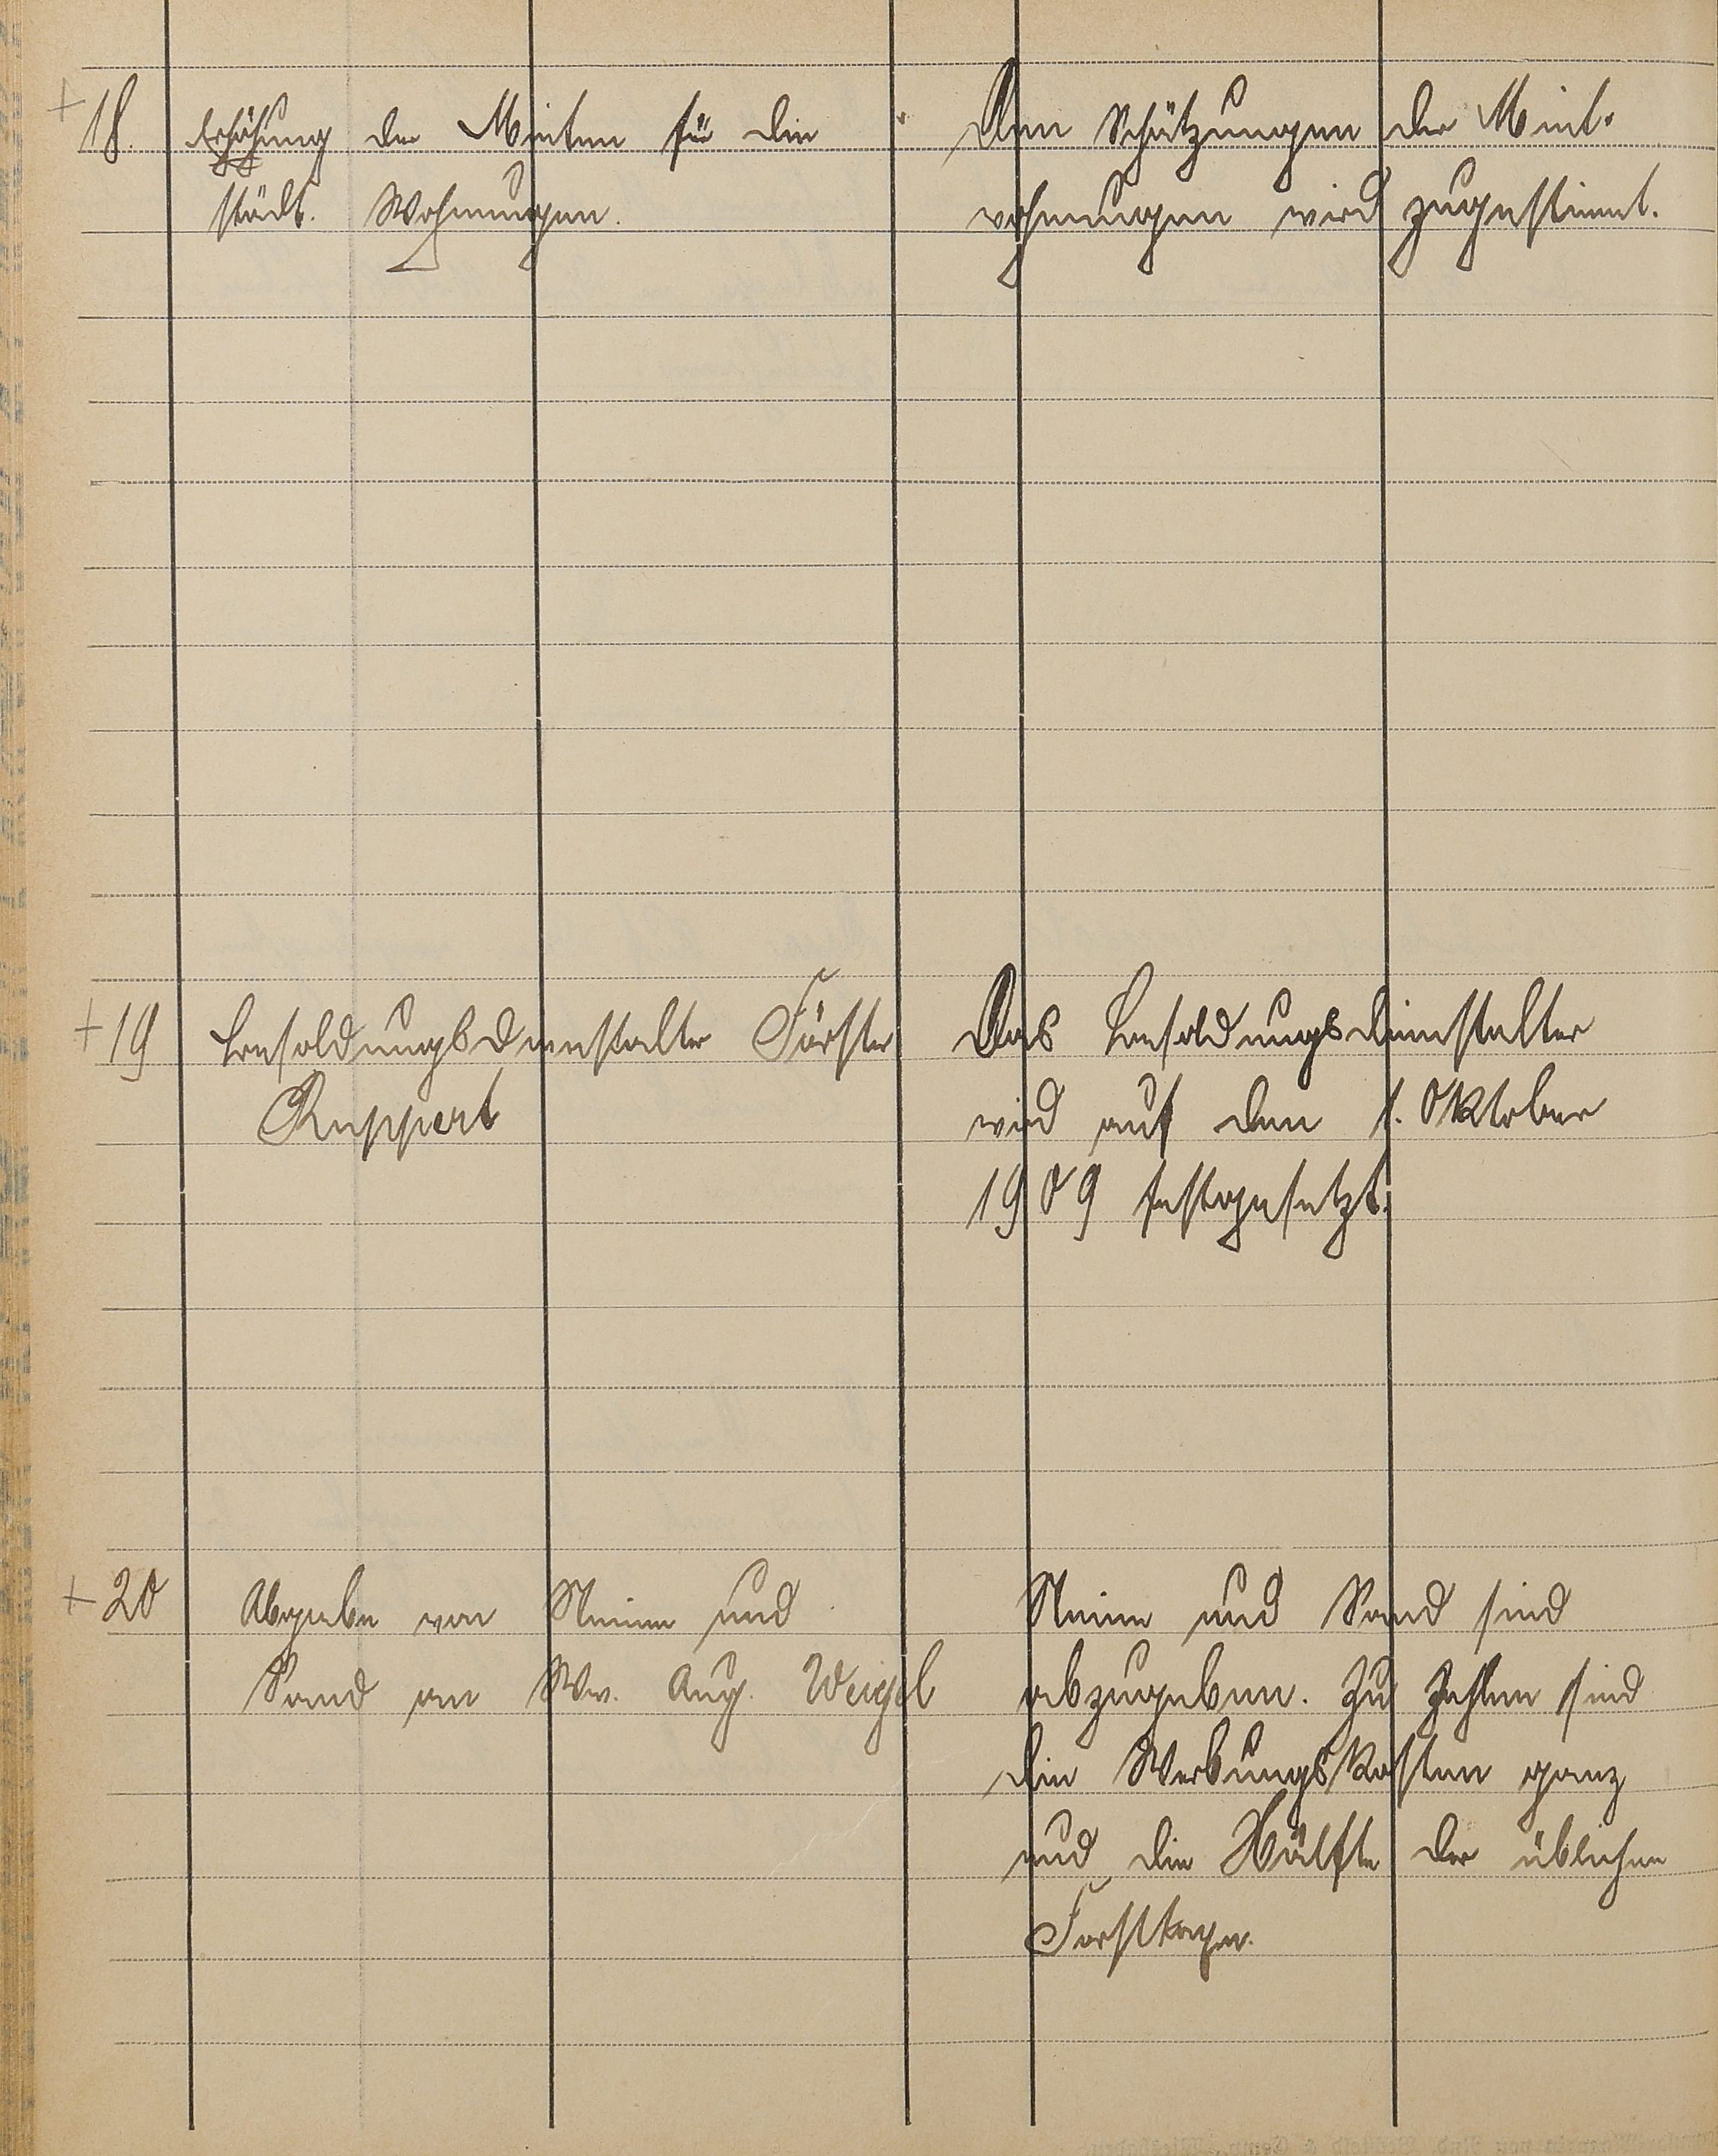 + 18. Erhöhung der Mieten für die
städt. Wohnungen.
Den Schätzungen der Miet-
wohnungen wird zugestimmt.
+ 19 Besoldungsdienstalter Förster
Ruppert
Das Besoldungsdienstalter
wird auf den 1. Oktober
1909 festgesetzt.
+ 20 Abgabe von Steine und
Sand an Ww. Aug. Weigel
Steine und Sand sind
abzugeben. Zu Zahlen sind
die Werbungskosten ganz
und die Hälfte der üblichen
Forsttaxe.